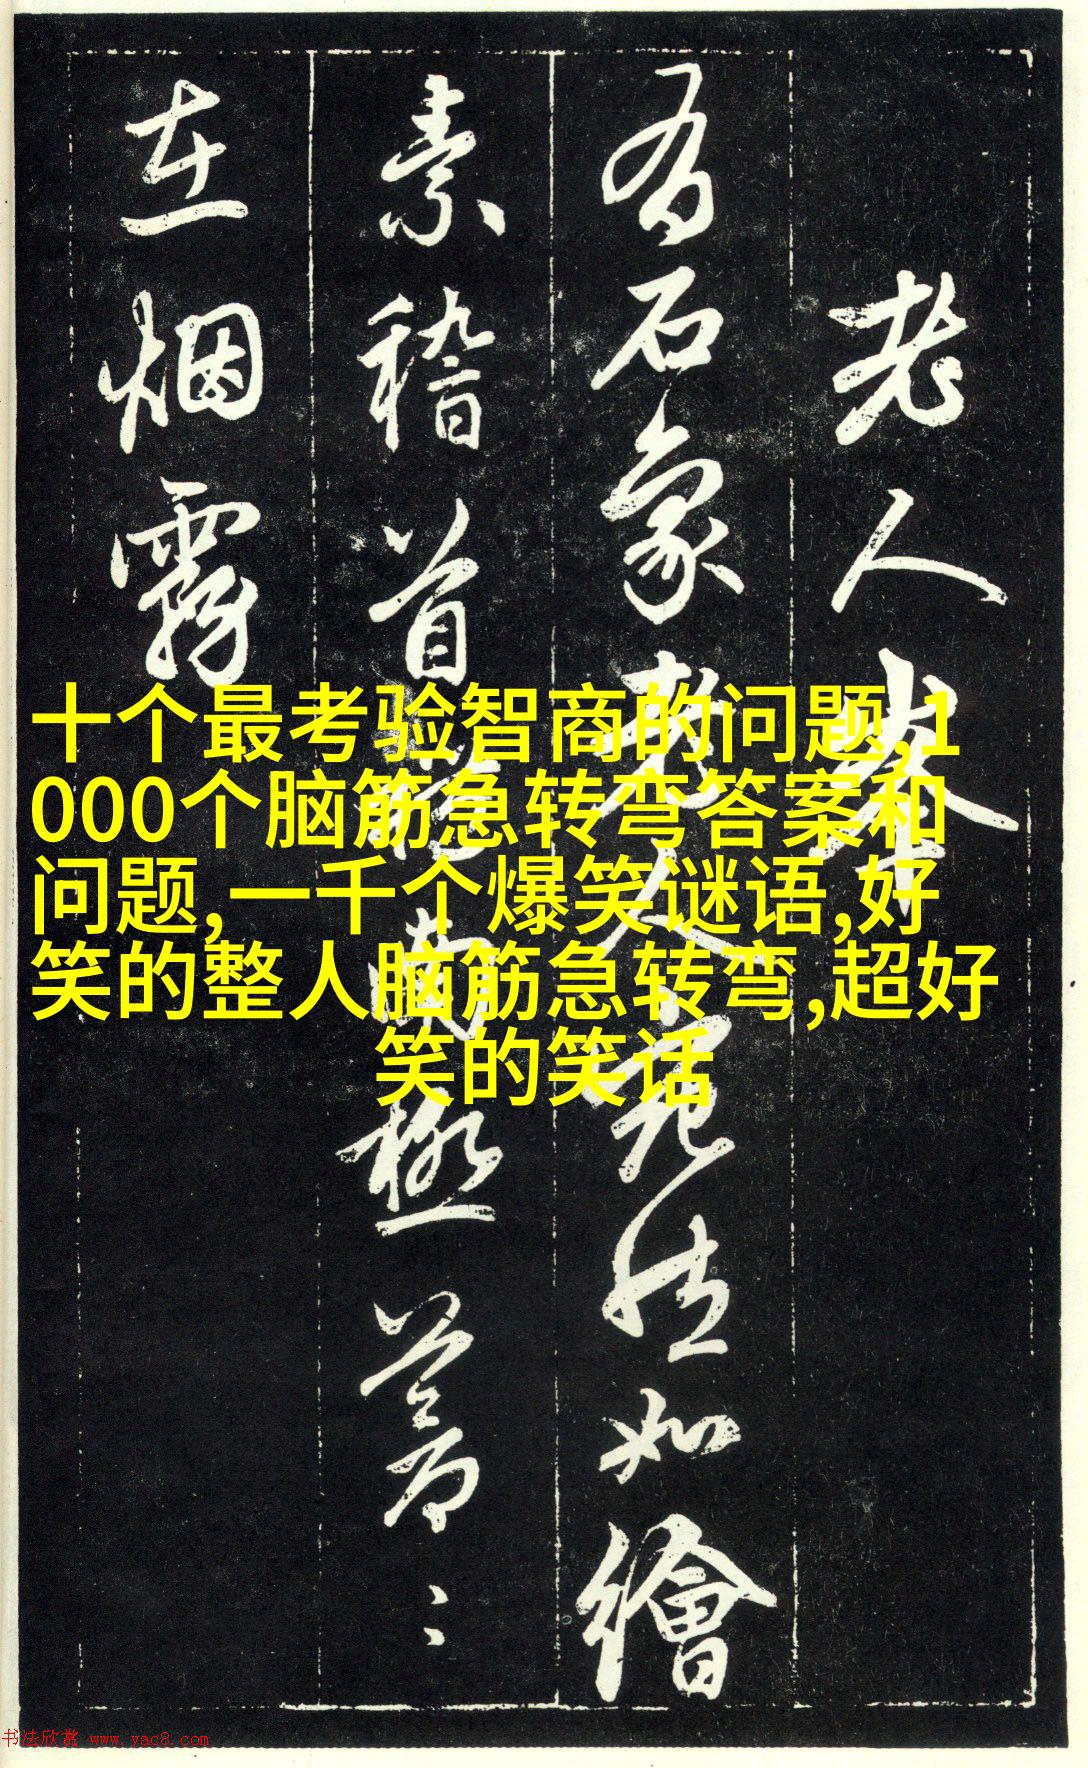 老人峯
有石象老人如繪
素稽首南極蒼
在烟霧
十个最考验智商的问题,1
000个脑筋急转弯答案和
问题,一千个爆笑谜语,好
笑的整人脑筋急转弯,超好
笑的笑话
书法欣赏 www.yac8.com